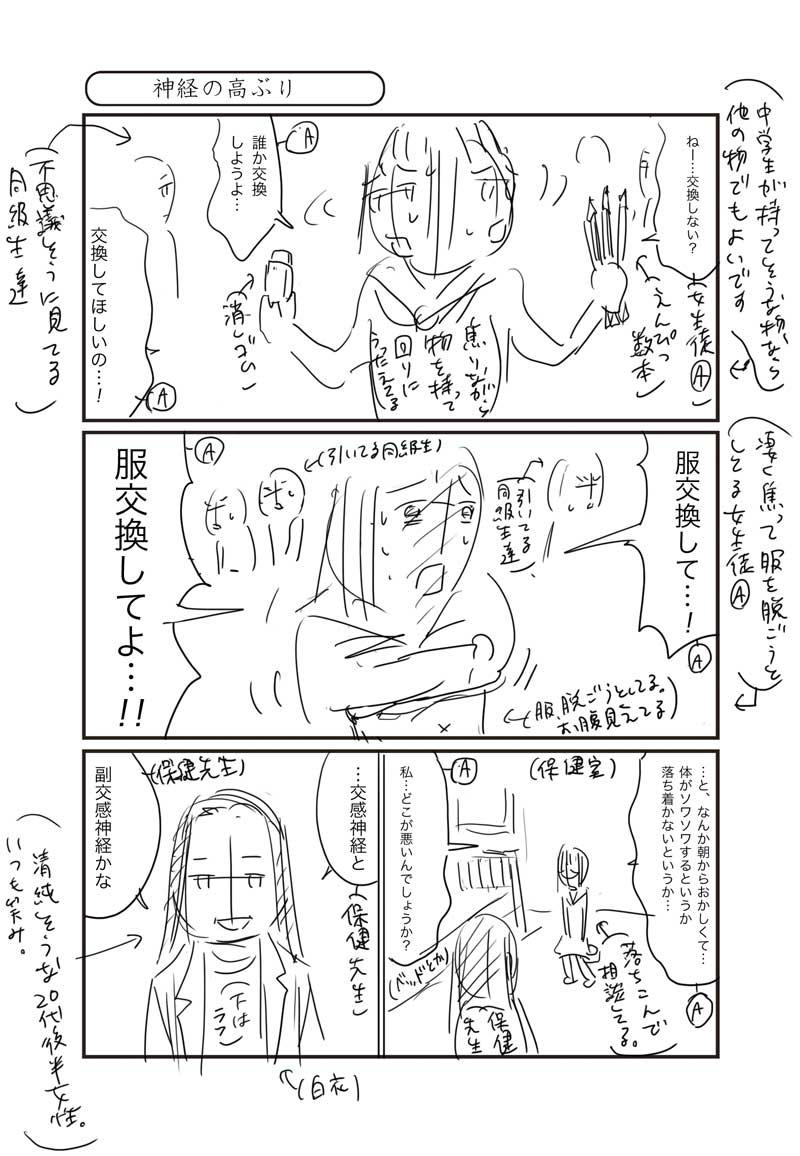 神経の高ぶり
中学生が持ってそうな物なら
他の物でもよいです
ねー…交換しない?
女生徒A
えんぴつ
数本
焦りながら
物を持って
回りに
うったえてる
誰か交換
しようよ…
A
消しごむ
交換してほしいの…!
A
不思議そうに見てる
同級生達
凄く焦って服を脱ごうと
してる女生徒A
服交換して…!
A
引いてる
同級生達
(引いてる同級生)
(服、脱ごうとしてる。
お腹見えてる)
服交換してよ…!!
A
(保健室)
…と、なんか朝からおかしくて…
体がソワソワするというか
落ち着かないというか…
A
落ちこんで
相談してる。
私…どこが悪いんでしょうか?
A
(ベッドとか)
保健
先生
…交感神経と
(保健先生)
副交感神経かな
(保健先生)
(下は
ラフ)
(白衣)
清純そうな20代後半女性。
いつも笑み。